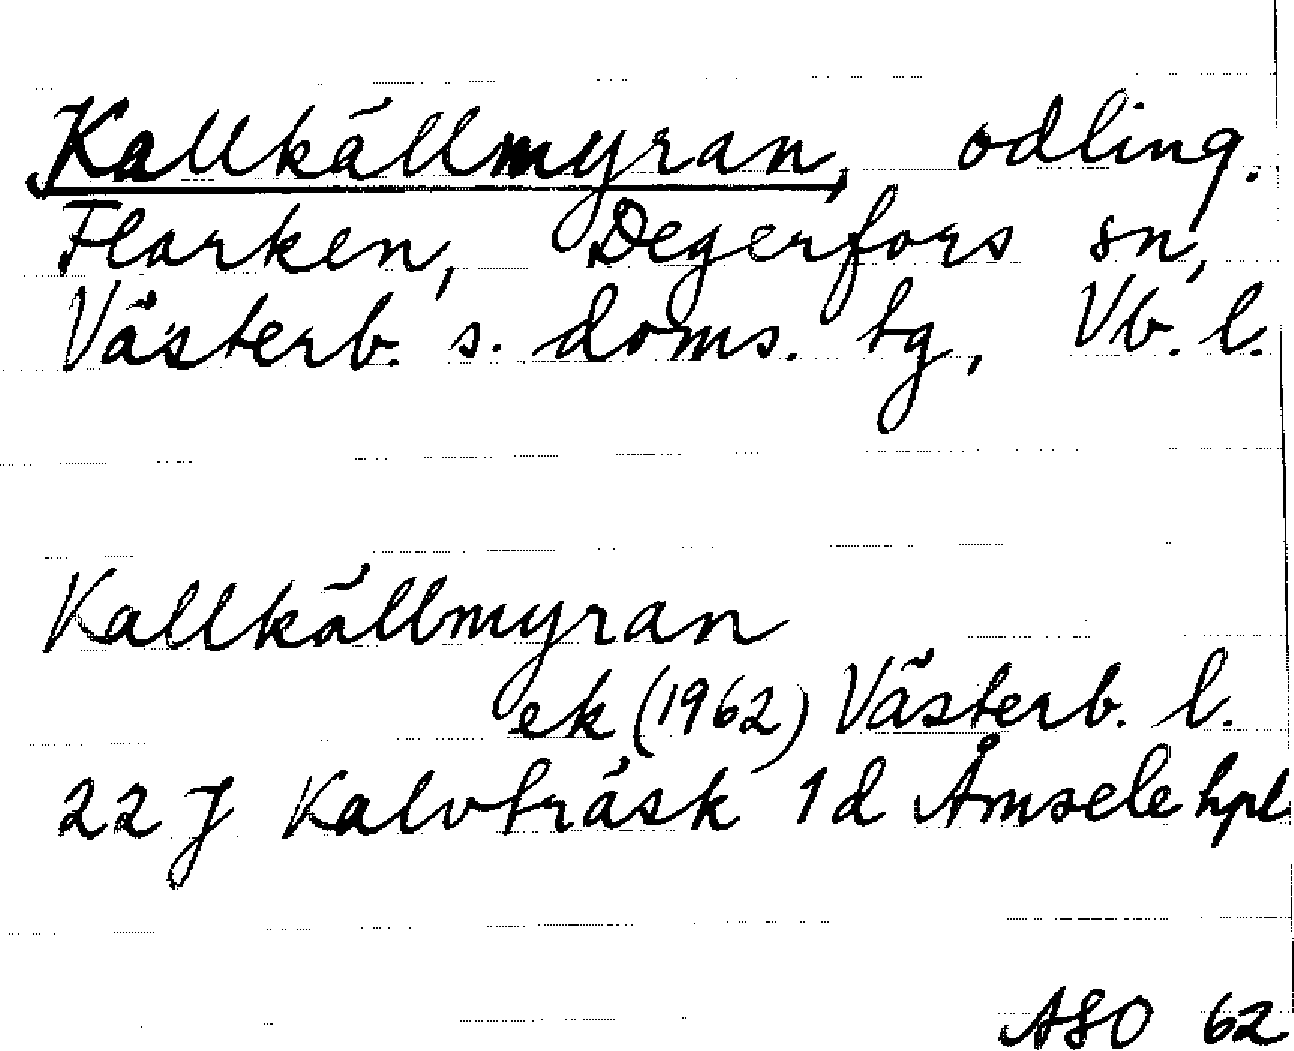 Kallkällmyran, odling.
Flarken, Degerfors sn,
Västerb. s. doms. tg, Vb. l.
Kallkällmyran
ek (1962) Västerb. l.
22 J Kalvträsk 1d Åmsele hpl
ASO 62